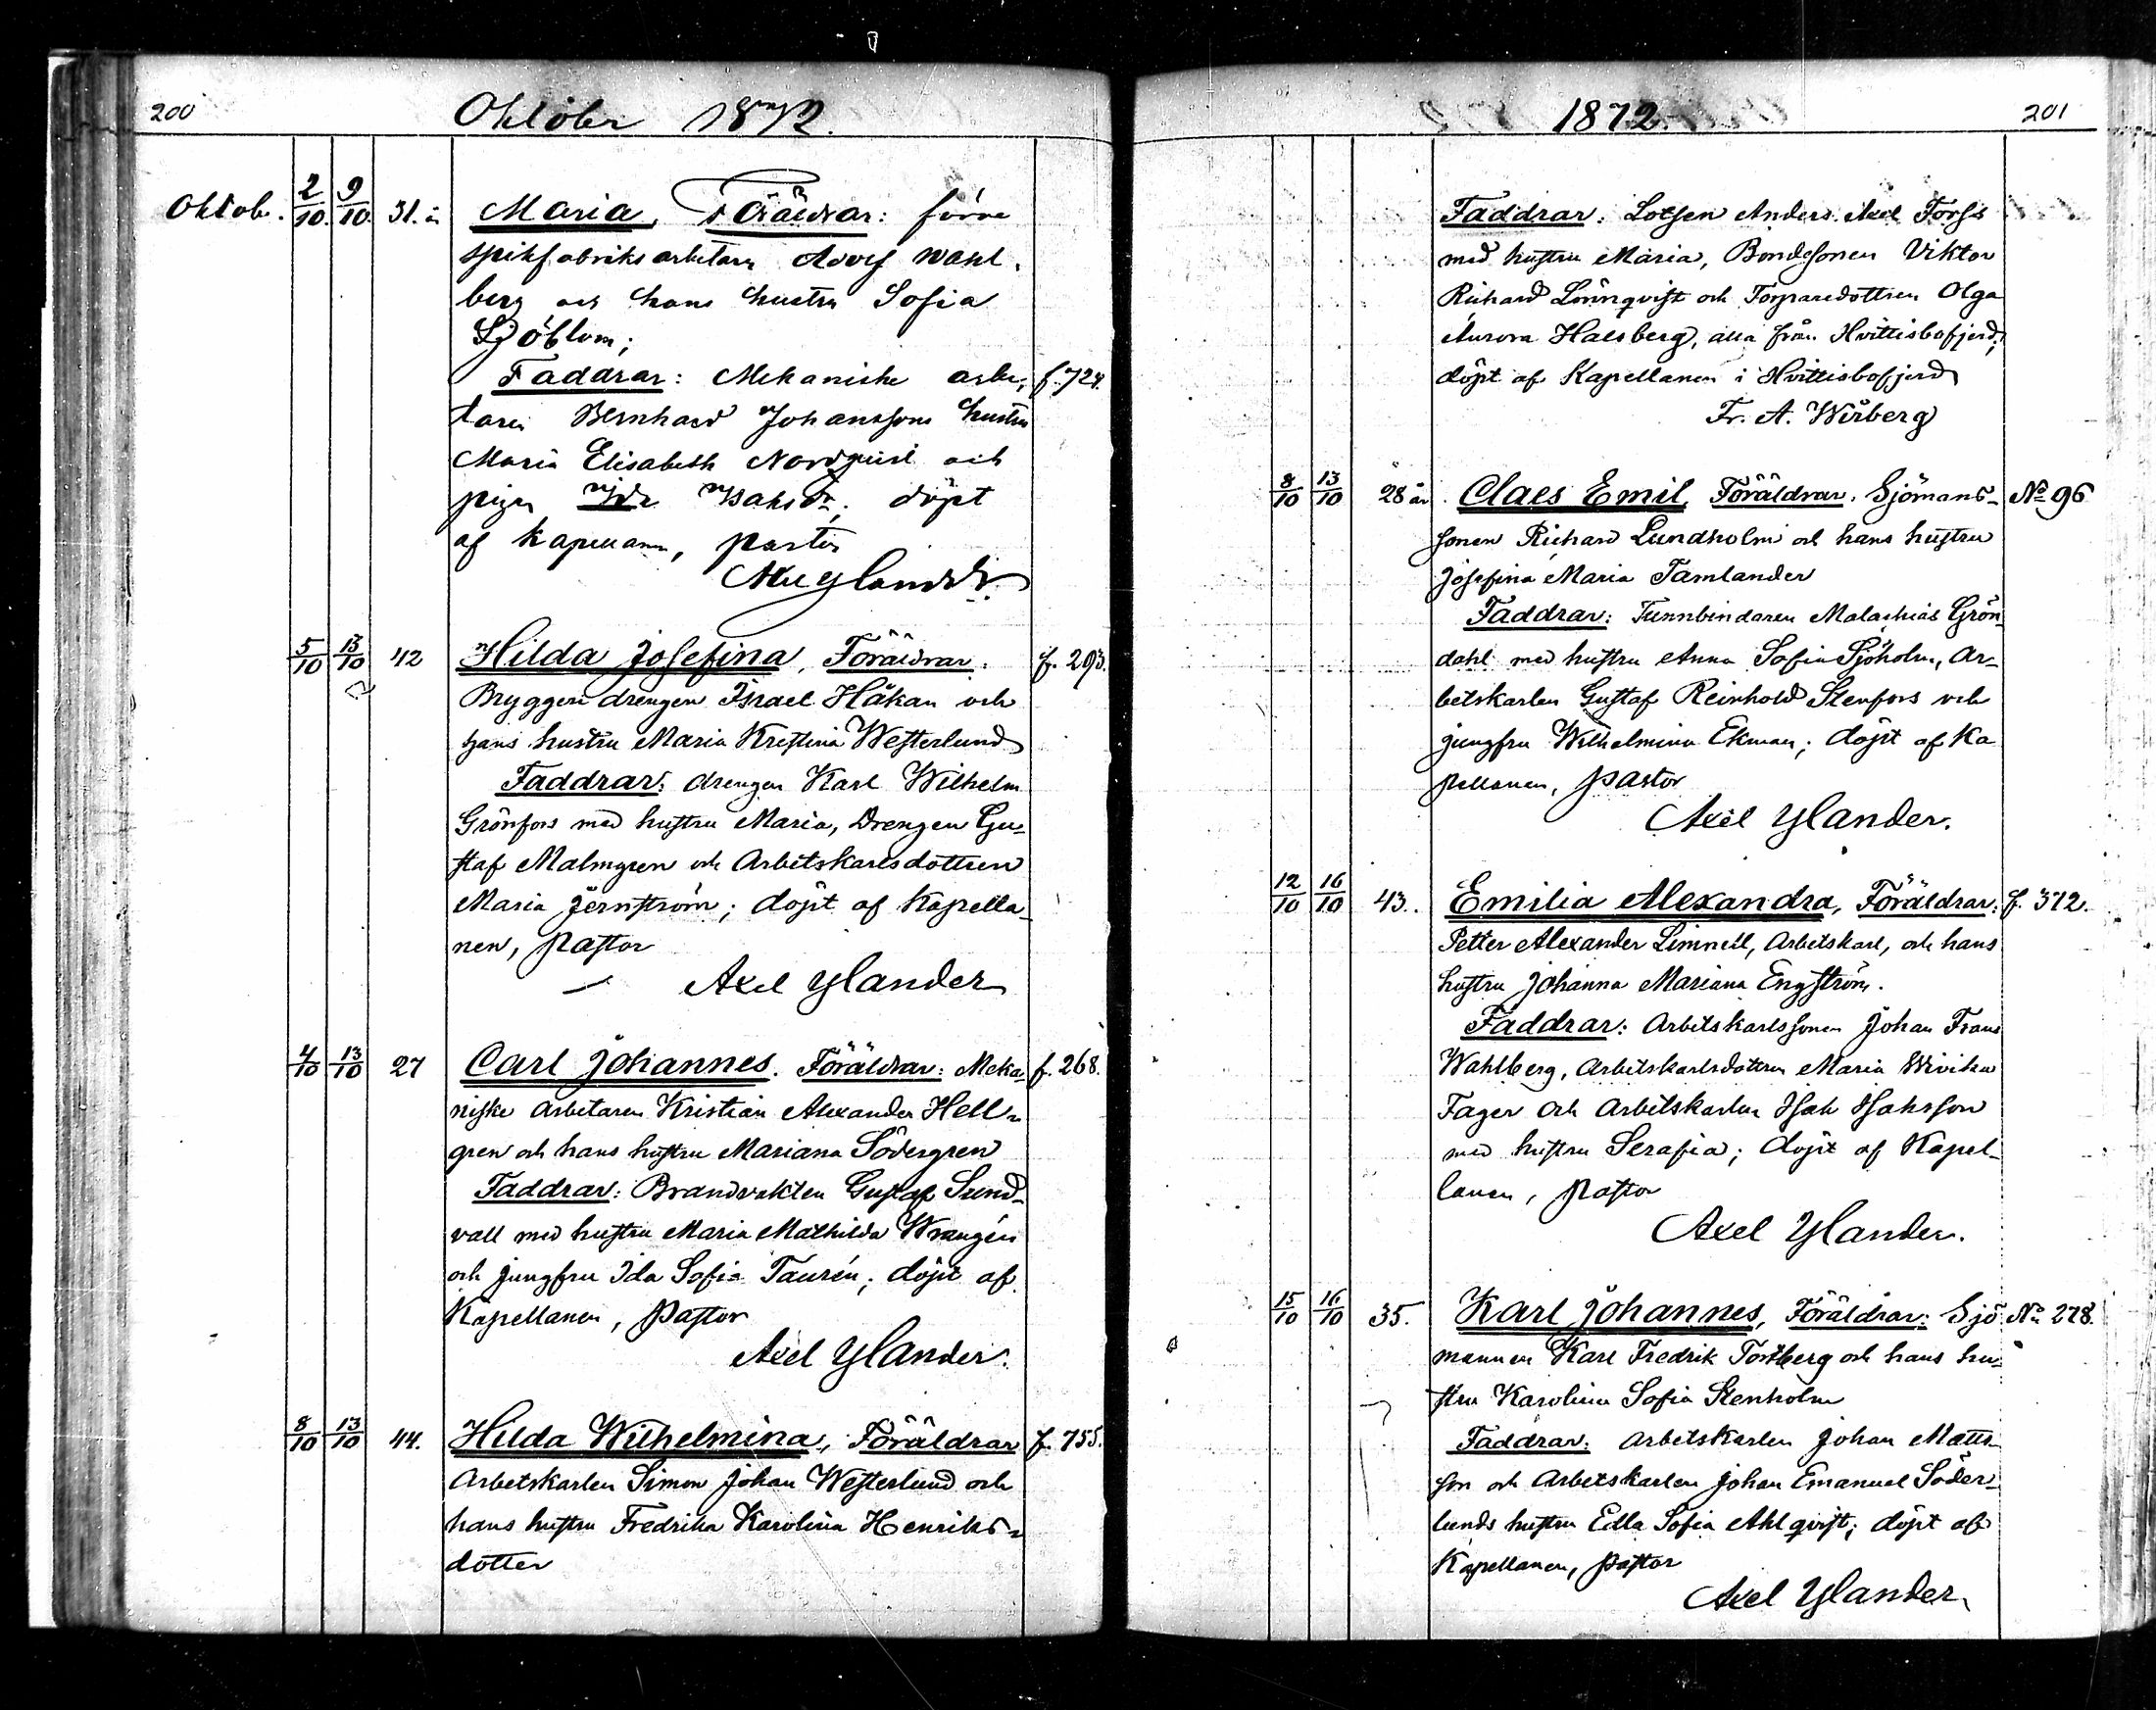 200
Oktober 1872.
Oktob. 2/10. 9/10. 31. år Maria, Föräldrar: förre
spikfabriksarbetaren Adolf Wahl-
berg och hans hustru Sofia
Sjöblom;
Faddrar: Mekaniske arbe- f. 724.
taren Bernhard Johanssons hustru
Maria Elisabeth Nordqvist och
pigan Ida Isaksdr; döpt
af Kapellanen, pastor
Ax Ylander.
5/10 13/10 42 Hilda Josefina, Föräldrar: f. 293.
Bryggeri drengen Israel Håkan och
hans hustru Maria Kristina Westerlund
Faddrar: drengen Karl Wilhelm
Grönfors med hustru Maria, Drengen Gu-
staf Malmgren och Arbetskarlsdottren
Maria Jernström; döpt af Kapella-
nen, Pastor
Axel Ylander
4/10 13/10 27 Carl Johannes. Föräldrar: Meka- f. 268.
niske Arbetaren Kristian Alexander Hell-
gren och hans hustru Mariana Södergren
Faddrar: Brandvakten Gustaf Sund-
vall med hustru Maria Mathilda Wrangén
och Jungfru Ida Sofia Taurén; döpt af
Kapellanen, Pastor
Axel Ylander.
8/10 13/10 44. Hilda Wilhelmina, Föräldrar f. 755.
Arbetskarlen Simon Johan Westerlund och
hans hustru Fredrika Karolina Henriks-
dotter
1872.
201
Faddrar: Lotsen Anders Axel Forss
med hustru Maria, Bondesonen Viktor
Richard Lönnqvist och Torparedottren Olga
Aurora Halsberg, alla från Hvittisbofjerd;
döpt af Kapellanen i Hvittisbofjerd
Fr. A. Wirberg
8/10 13/10 28 år. Claes Emil, Föräldrar: Sjömans- No 96
sonen Richard Lundholm och hans hustru
Josefina Maria Tamlander
Faddrar: Tunnbindaren Malachias Grön-
dahl med hustru Anna Sofia Sjöholm, Ar-
betskarlen Gustaf Reinhold Stenfors och
jungfru Wilhelmina Ekman; döpt af Ka
pellanen, pastor
Axel Ylander.
12/10 16/10 43. Emilia Alexandra, Föräldrar: f. 372.
Petter Alexander Limnell, Arbetskarl, och hans
hustru Johanna Mariana Engström.
Faddrar: Arbetskarlssonen Johan Frans
Wahlberg, Arbetskarlsdottren Maria Wivika
Fager och Arbetskarlen Isak Isaksson
med hustru Serafia; döpt af Kapel-
lanen, Pastor
Axel Ylander.
15/10 16/10 35. Karl Johannes, Föräldrar: Sjö No 278.
mannen Karl Fredrik Torstberg och hans hu-
stru Karolina Sofia Stenholm
Faddrar: Arbetskarlen Johan Matts-
son och Arbetskarlen Johan Emanuel Söder-
lunds hustru Edla Sofia Ahlqvist; döpt af
Kapellanen, Pastor
Axel Ylander.